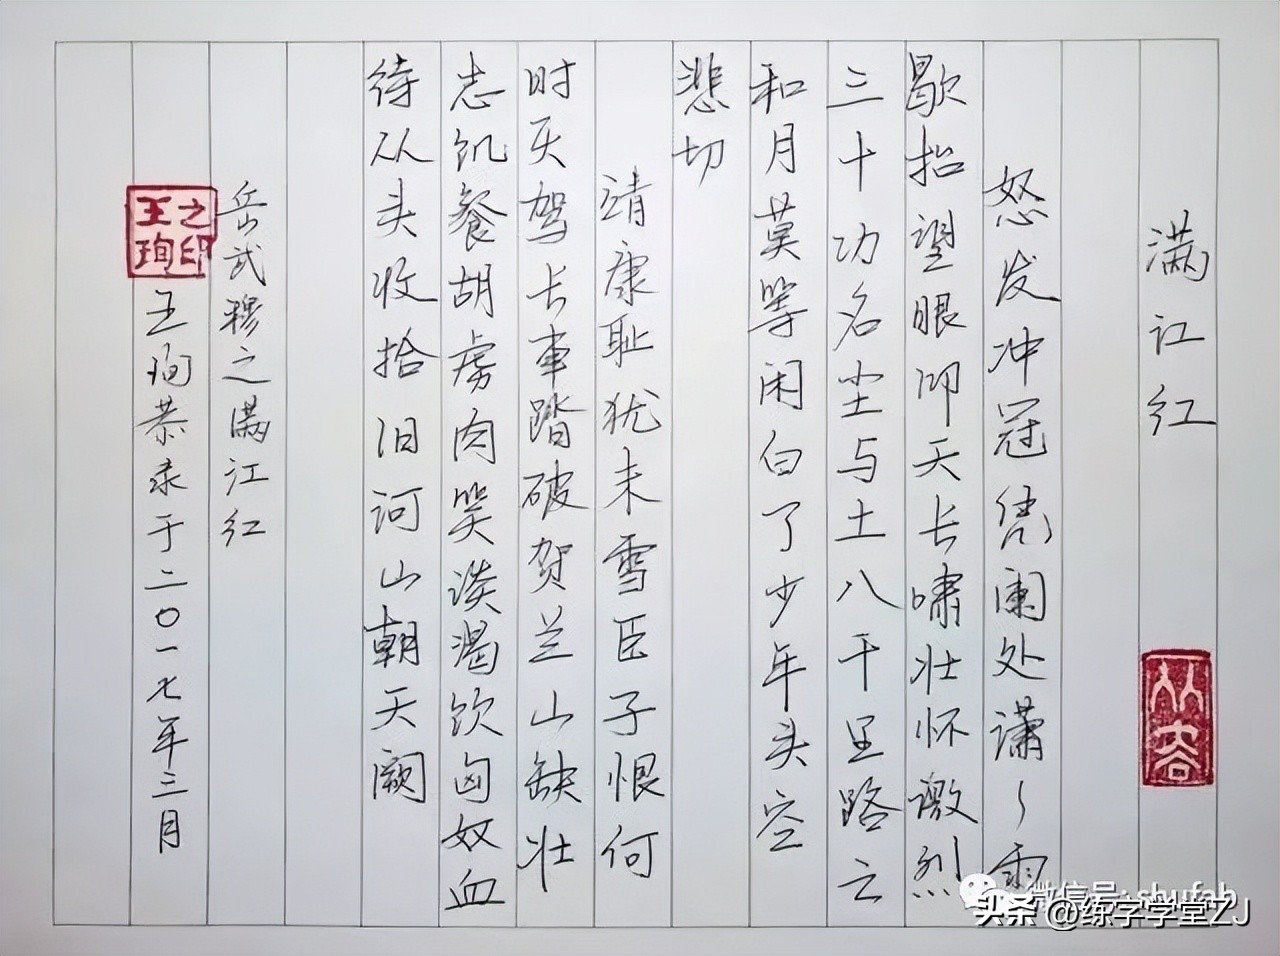 满江红
怒发冲冠凭阑处潇〻雨
歇抬望眼仰天长啸壮怀激烈
三十功名尘与土八千里路云
和月莫等闲白了少年头空
悲切
靖康耻犹未雪臣子恨何
时灭驾长车踏破贺兰山缺壮
志饥餐胡虏肉笑谈渴饮匈奴血
待从头收拾旧河山朝天阙
岳武穆之满江红
王珣恭录于二〇一七年三月
王珣之印
微信号: shufab
头条 @练字学堂ZJ